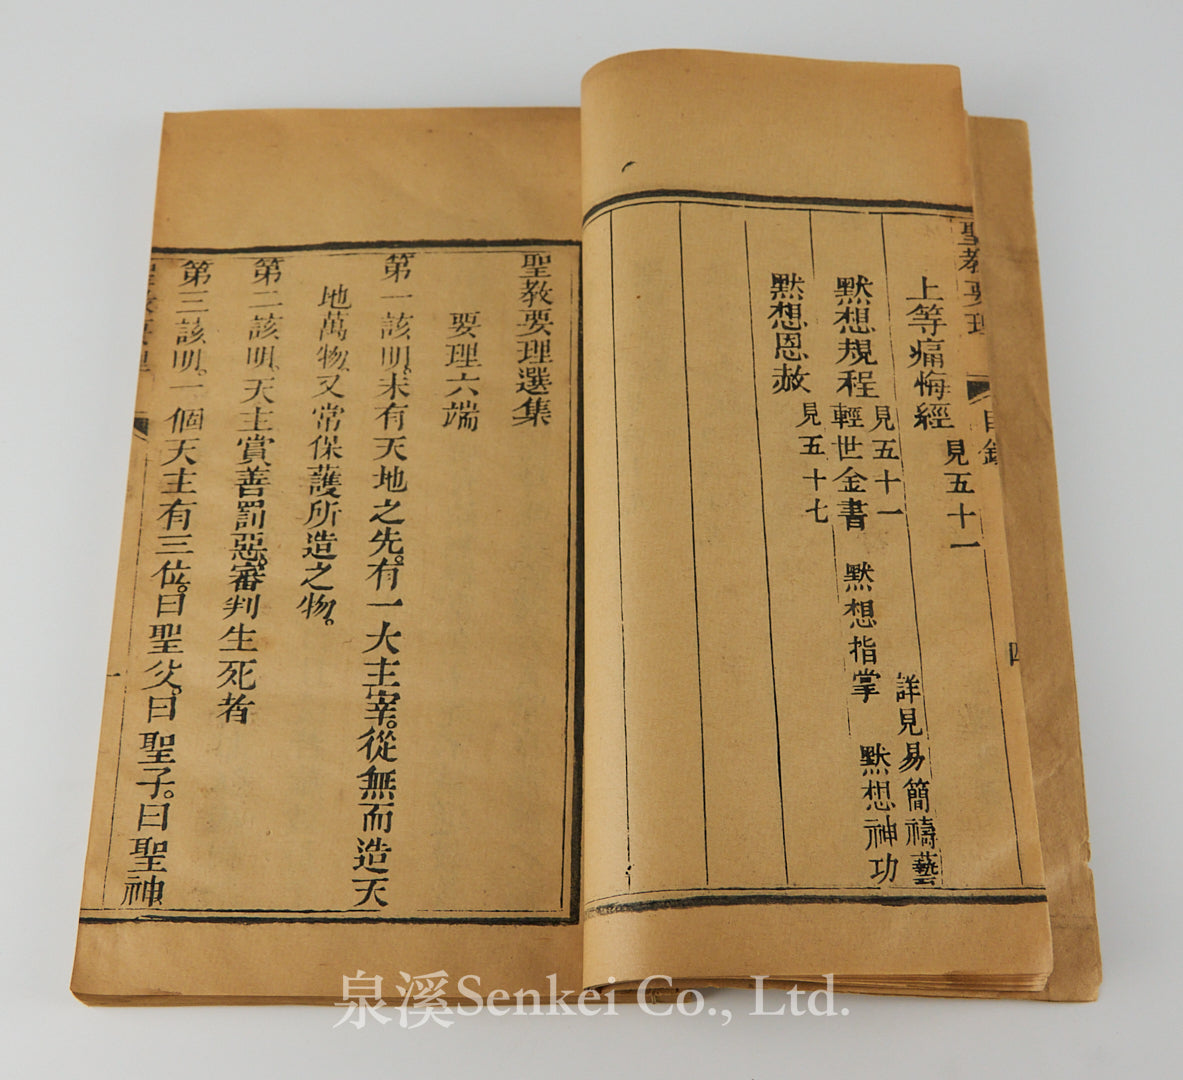 聖教要理
目錄
四
上等痛悔經
見五十一
默想規程
見五十一
輕世金書
默想指掌
詳見易簡禱藝
默想神功
默想恩赦
見五十七
聖教要理選集
要理六端
第一該明。未有天地之先。有一大主宰。從無而造天
地萬物。又常保護所造之物。
第二該明。天主賞善罰惡。審判生死者
第三該明。一個天主有三位。曰聖父。曰聖子。曰聖神
聖教要理
一
泉溪Senkei Co., Ltd.